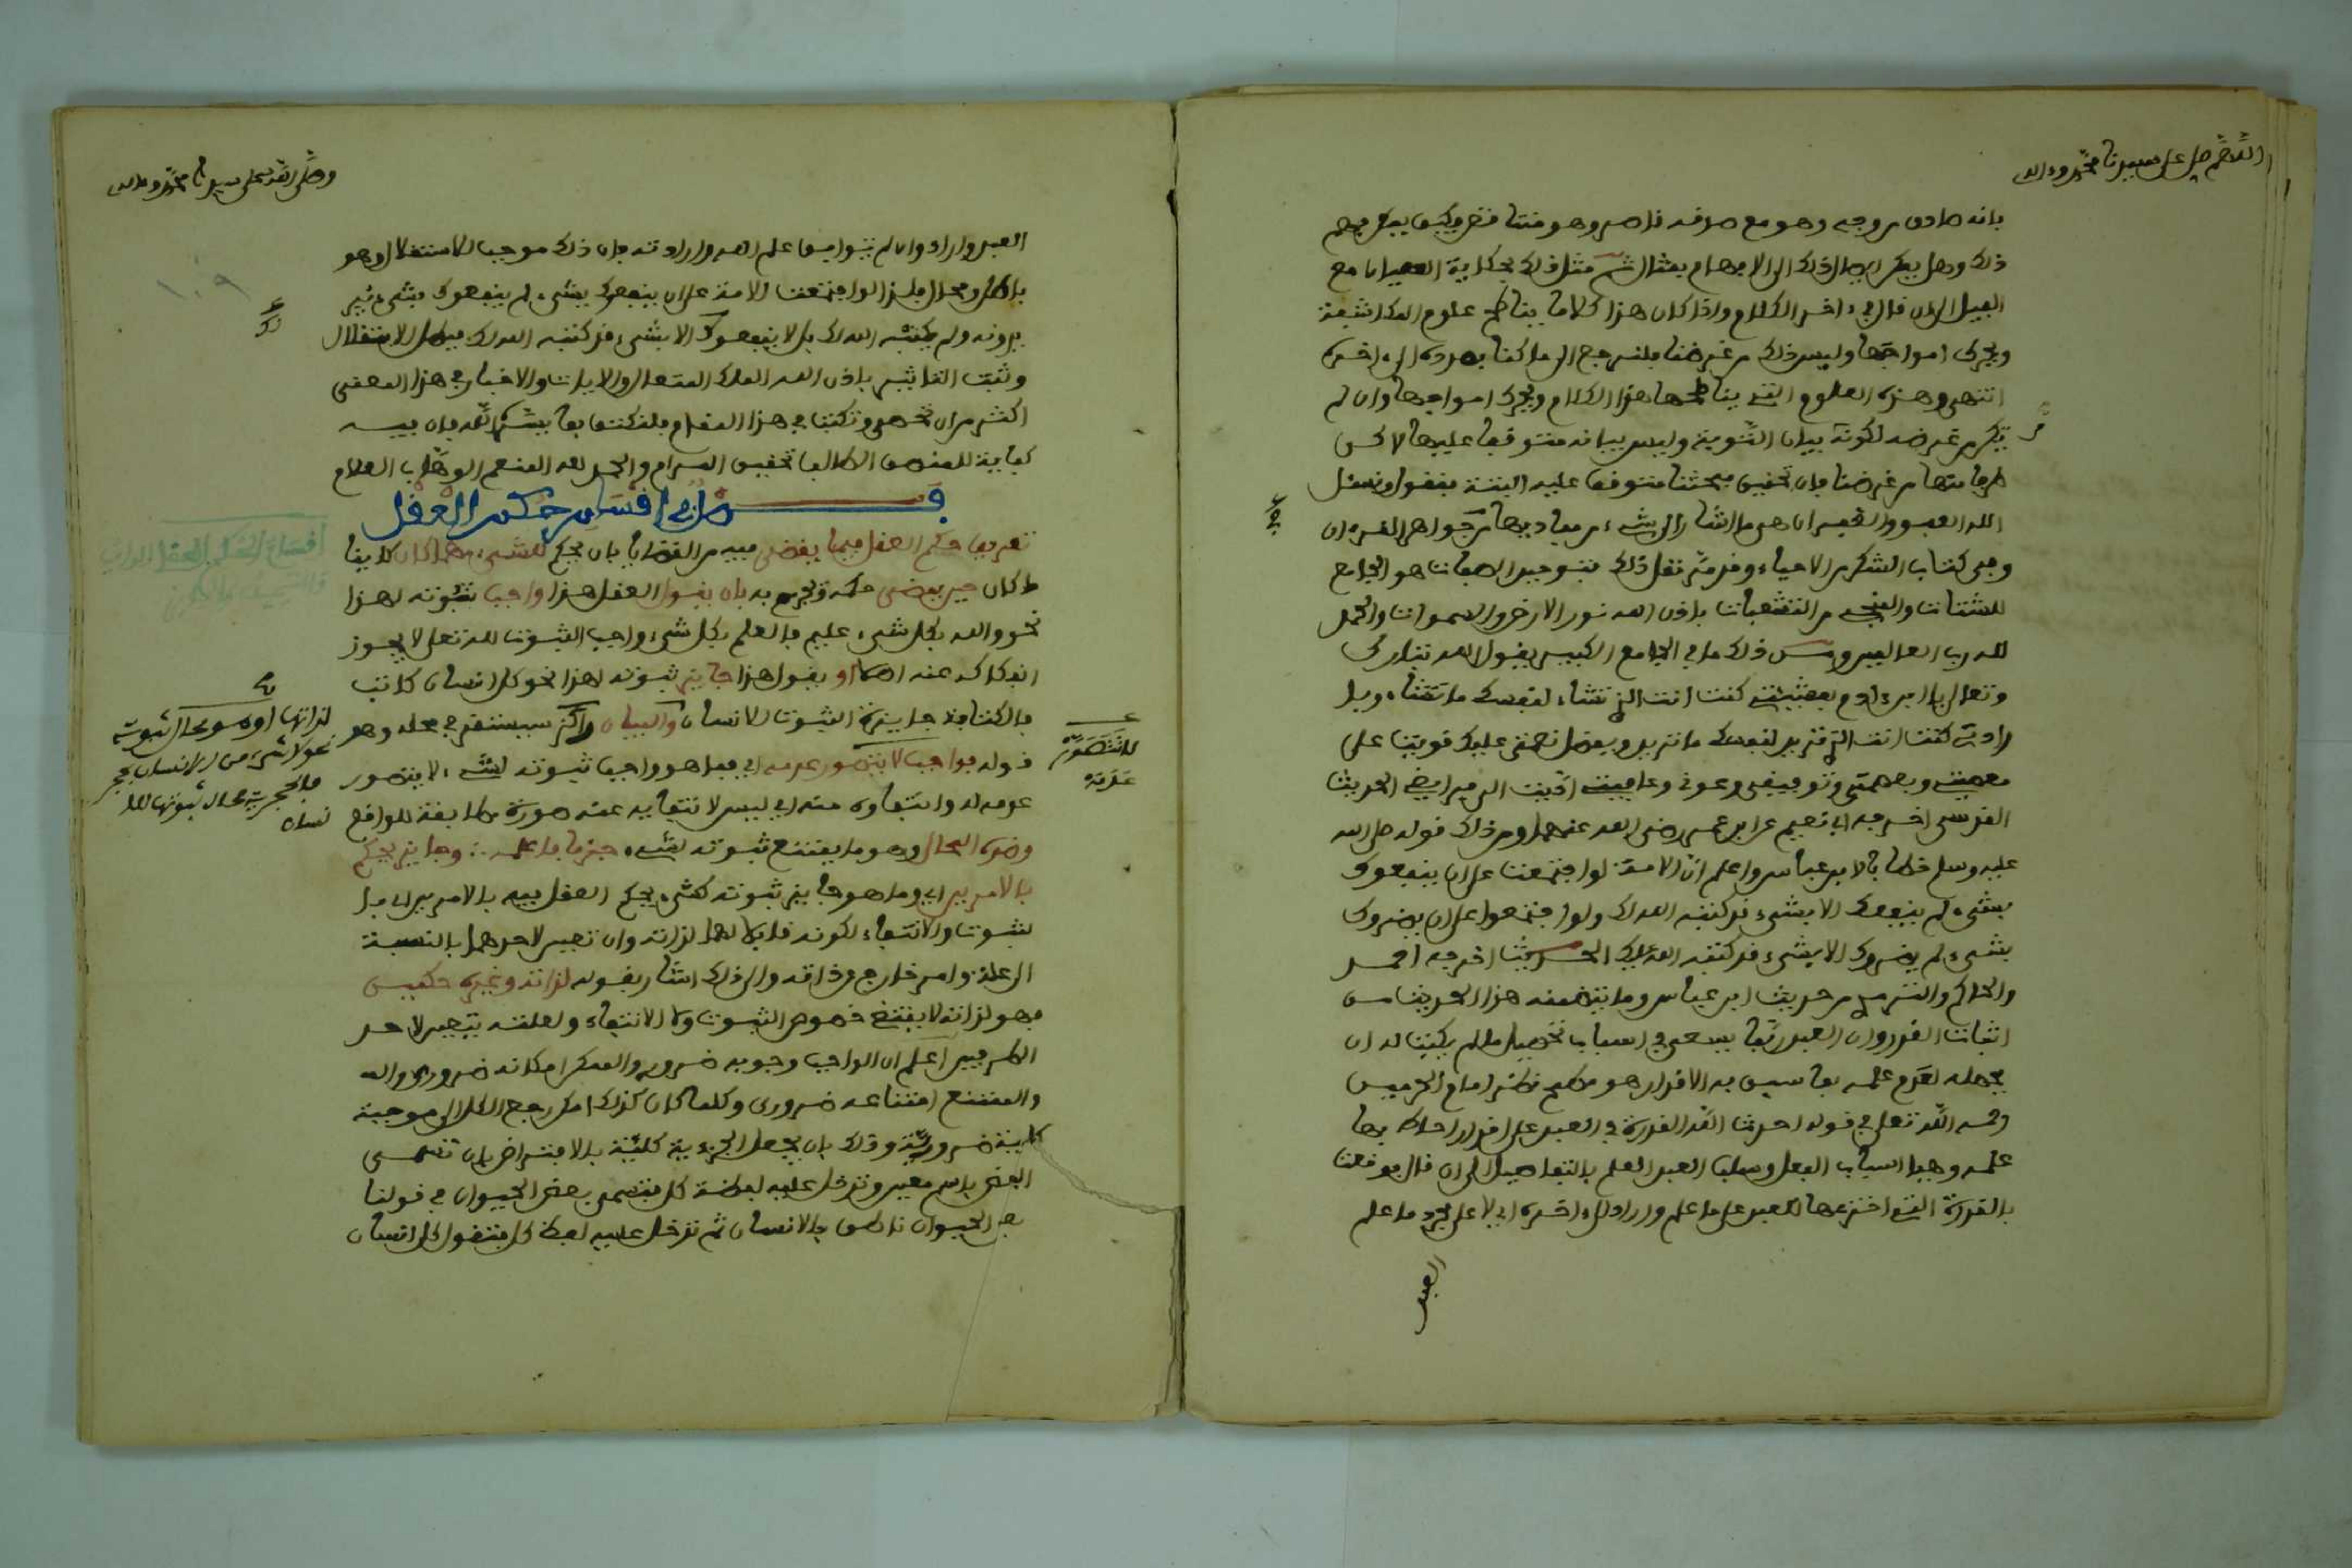 اللهم صل على سيدنا محمد وءاله
بانه صادق من وجه وهو مع صدقه قاصر وهو منتا فض وكيف يمكن فهم
ذلك وهل يمكن ايصال ذلك الى الافهام بمثال ثم مثل ذلك بحكاية العميان مع
الفيل الى ان قال في ءاخر الكلام واذا كان هذا كلاما يناطح علوم المكاشفة
ويحرك امواجها وليس ذلك من غرضنا فلنرجع الى ما كنا بصدده الى ءاخره
انتهى وهذه العلوم التي يناطحها هذا الكلام ويحرك امواجها وان لم
يكن من غرضه لكونه بيان التوبة وليس بيانه متوقفا عليها لاكن
طرفا منها من غرضنا فان تحقيق مبحثنا متوقف عليه البتة فنقول ونسئل
الله العفو والتقصير ان هى ما اشار الى شيء من مباديها من جواهر القرءان
وفى كتاب الشكر من الاحياء وقد مر نقل ذلك فتوحيد الصفات هو الجامع
للشتات والمنجي من التشعبات باذن الله نور الارض والسموات والحمد
لله رب العالمين ومن ذلك ما في الجامع الكبير يقول الله تبارك
وتعالى يا ابن ءادم بمشيئتي كنت انت الذي تشاء لنفسك ما تشاء وبا
رادتي كنت انت الذي تريد لنفسك ما تريد وبفضل نعمتي عليك قويت على
معصيتي وبعصمتي وتوفيقي وعوني وعافيتي اديت الي فرايضي الحديث
القدسي اخرجه ابو نعيم عن ابن عمر رضي الله عنهما ومن ذلك قوله صلى الله
عليه وسلم خطابا لابن عباس واعلم ان الامة لو اجتمعت على ان ينفعوك
بشيء لم ينفعوك الا بشيء قد كتبه الله لك ولو اجتمعوا على ان يضروك
بشيء لم يضروك الا بشيء قد كتبه الله عليك الحديث اخرجه احمد
والحاكم والترمذي من حديث ابن عباس وما يتضمنه هذا الحديث من
اثبات القدر وان العبد ربما يسعى في اسباب تحصيل ما لم يكتب له ان
يجهله لعدم علمه بما سبق به الاقدار هو مطمح نظر امام الحرمين
رحمه الله تعلى في قوله احدث الله القدرة في العبد على اقدار احاط بها
علمه وهيا اسباب الفعل وسلب العبد العلم بالتفاصيل الى ان قال فوقعت
بالقدرة التي اخترعها للعبد على ما علم واراد الى ءاخره اي لا على مجرد ما علم
العبد
وصلى الله على سيدنا محمد وءاله
العبد واراد وان لم يتوافق علم الله وارادته فان ذلك موجب للاستقلال وهو
باطل ومحال فلذا لو اجتمعت الامة على ان ينفعوك بشيء لم ينفعوك بشيء
يريدونه ولم يكتبه الله لك بل لا ينفعوك الا بشيء قد كتبه الله لك فبطل الاستقلال
وثبت التاثير باذن الله الملك المتعال والايات والاخبار في هذا المعنى
اكثر من ان تحصى وتكتب في هذا المقام فلنكتف بما يسره الله فان فيه
كفاية للمنصف الطالب تحقيق المرام والحمد لله المنعم الوهاب العلام
فصل في اقسام حكم العقل
تعريف حكم العقل فيما يقضي فيه من القضايا بان يحكم للشيء مهما كان كاينا
ما كان حين يقضى حكمه ويجزم به بان يقول العقل هذا واجب ثبوته لهذا
نحو والله بكل شيء عليم فالعلم بكل شيء واجب الثبوت لله تعلى لا يجوز
انفكاكه عنه اصلا او يقول هذا جايز ثبوته لهذا نحو كل انسان كاتب
فالكتابة جايزة الثبوت للانسان والبيان سيستقر في محله وهو
قوله فواجب لا يتصور عدمه اي فما هو واجب ثبوته لشيء لا يتصور
عدمه له وانتفاوه عنه اي ليس لانتفايه عنه صورة مطابقة للواقع
وضده المحال وهو ما يمتنع ثبوته لشيء جزما فاعلم وجايز يحكم
بالامرين اي وما هو جايز ثبوته لشيء يحكم العقل فيه بالامرين اي با
لثبوت والانتفاء لكونه قابلا لهما لذاته وان تعين لاحدهما بالنسبة
الى علة وامر خارج عن ذاته والى ذلك اشار بقوله لذاته وغيره حكمين
فهو لذاته لا يقتضي خصوص الثبوت ولا الانتفاء ولعلته يتعين لاحد
الطرفين اعلم ان الواجب وجوبه ضروري والممكن امكانه ضروري
والممتنع امتناعه ضروري وكلما كان كذلك امكن رجع الكل الى موجبة
كلية ضرورية وذلك بان يجعل الجزءية كلية بالافتراض بان تسمى
البعض باسم معين وتدخل عليه لفظة كل فتسمى بعض الحيوان في قولنا
بعض الحيوان ناطق بالانسان ثم تدخل عليه لفظة كل فتقول كل انسان
لا يتصور
عدمه
لذاتها او هو محال ثبوته
نحو لا شيء من الانسان بحجر
فالحجرية محال ثبوتها للا
نسان
١٠٩